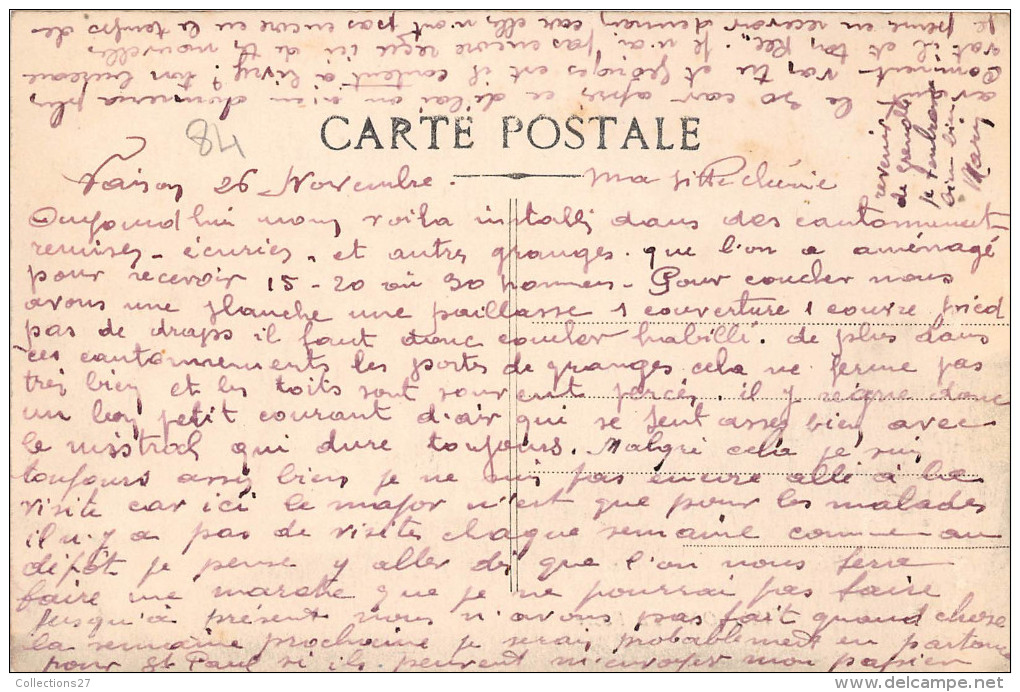 CARTE POSTALE
84
Vaison 26 Novembre. Ma ptte chérie
Aujourd'hui nous voila installés dans des cantonnement
remises, écuries, et autres granges que l'on a aménagé
pour recevoir 15-20 où 30 hommes. Pour coucher nous
avons une planche une paillasse 1 couverture 1 couvre pied
pas de draps il faut donc coucher habillé. de plus dans
ces cantonnements les portes de granges cela ne ferme pas
très bien et les toits sont souvent percés, il y règne donc
un bon petit courant d'air qui se sent assez bien avec
le mistral qui dure toujours. Malgré cela je suis
toujours assez bien je ne suis pas encore allé à la
visite car ici le major n'est que pour les malades
il n'y a pas de visites chaque semaine comme au
dépôt je pense y aller dès que l'on nous fera
faire une marche que je ne pourrai pas faire
Jusqu'à présent nous n'avons pas fait grand chose
la semaine prochaine je serai probablement en partance
pour St Paul si ils peuvent m'envoyer mon papier
avant le 30 car après ce délai on n'en donnera plus
Comment vas tu et Georges est il content à Livry? ton bureau
va t il et ton Rec.. Je n'ai pas encore reçu ici de tes nouvelles
je pense en recevoir demain car elles n'ont pas encore eu le temps de
revenir
de Grenoble
je t'embrasse
bien
Marcy
Collections27
© delcampe.net